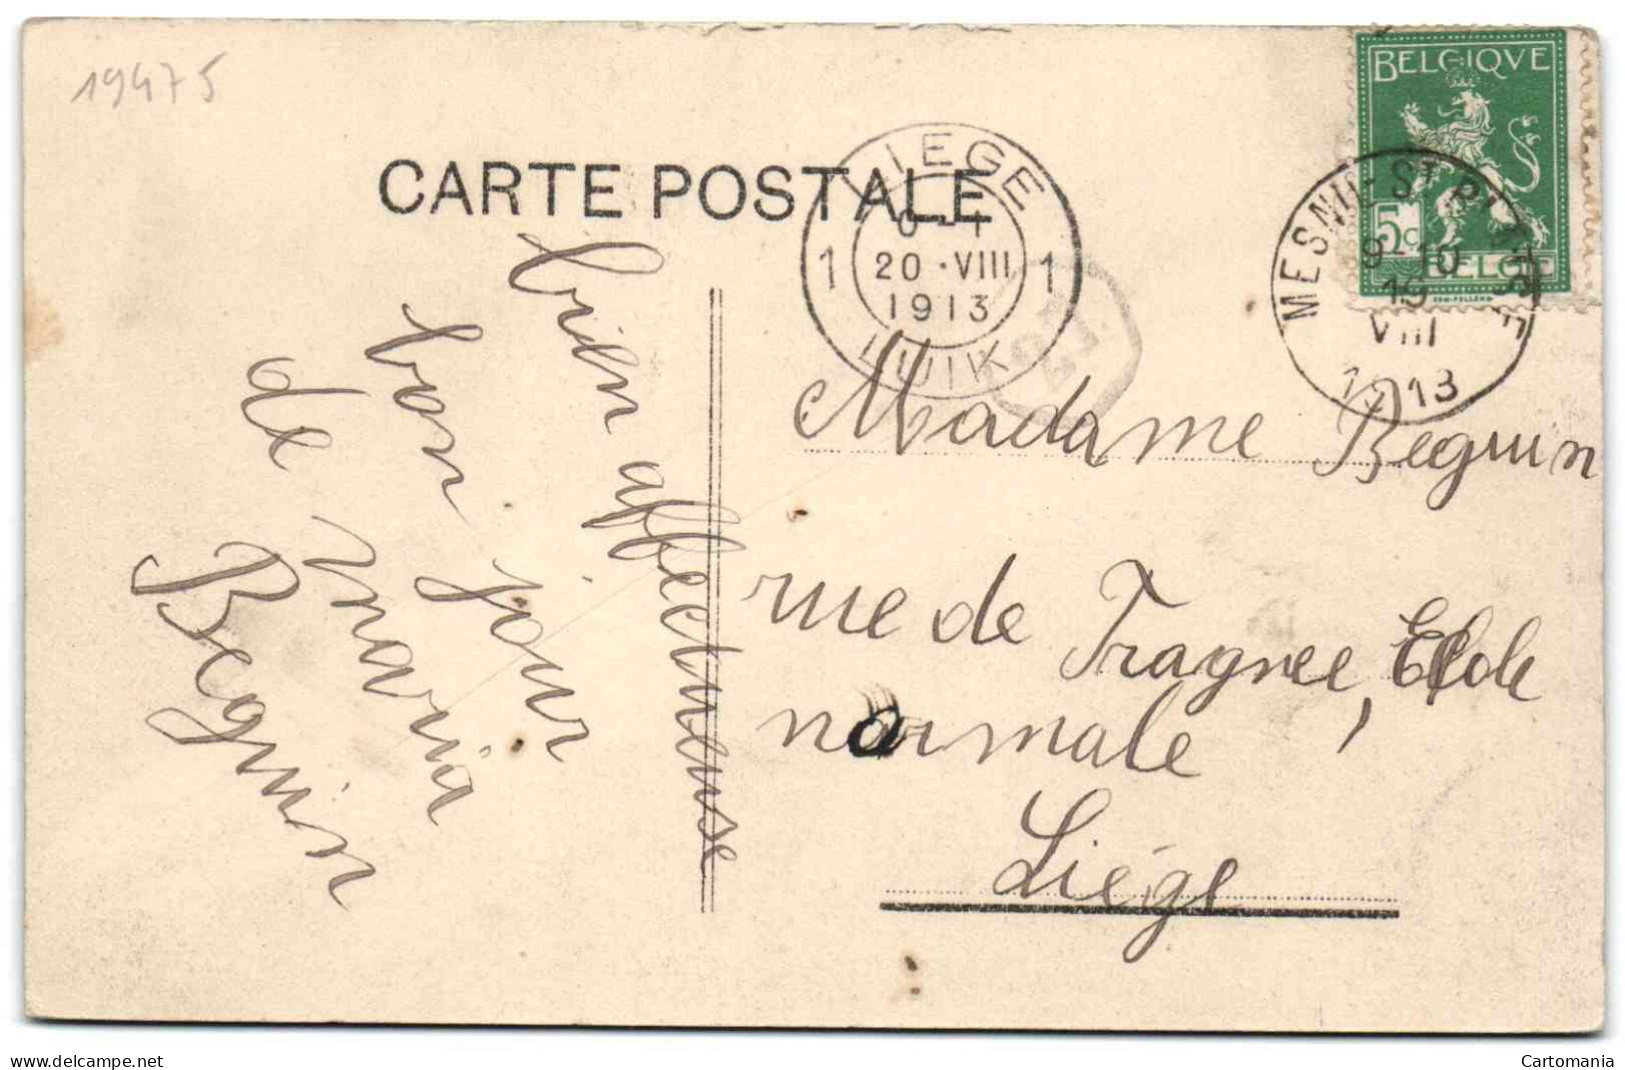 19475
CARTE POSTALE
LIEGE
0-1
1 20·VIII 1
1913
LUIK
BELGIQUE
5c
BELGIE
MESNIL-ST
9-10
19
VIII
1913
bien affectueuse
bon jour
de maria
Beguin
Madame Beguin
rue de Fragnee, Ecole
normale
Liége
www.delcampe.net
Cartomania